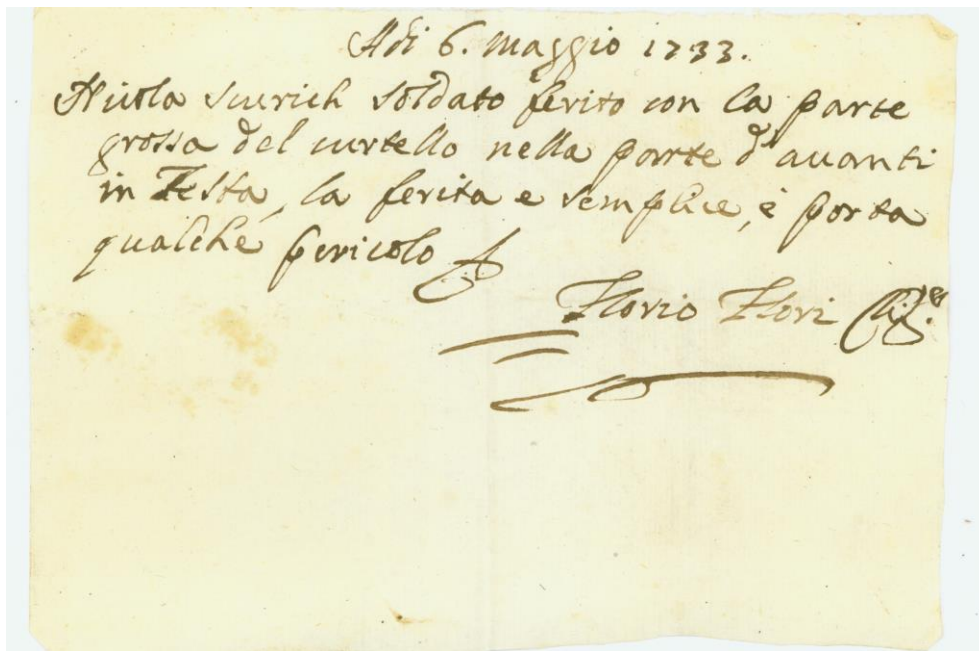 Adi 6. Maggio 1733.
Nicola scurich soldato ferito con la parte
grossa del curtello nella parte d'auanti
in Testa, la ferita e semplice, è porta
qualche pericolo
Florio Flori